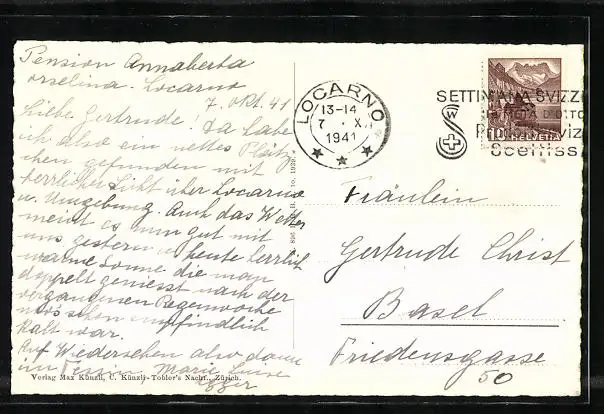 Pension Annaberta
Orselina. Locarno
7. Okt. 41
Liebe Gertrude! Da habe
ich also ein nettes Plätz-
chen gefunden mit
herrlicher Sicht über Locarno
u. Umgebung. Auch das Wetter
meint es nun gut mit
uns gestern u. heute herrlich
warme Sonne die man
doppelt geniesst nach der
vergangenen Regenwoche
wo's schon empfindlich
kalt war.
Auf Wiedersehen also dann
im Tessin Marie Luise
Egger
Verlag Max Künzli, C. Künzli-Tobler's Nachf., Zürich.
LOCARNO
13-14
7. X.
1941
SETTIMANA SVIZZE
10 HELVETIA
Fräulein
Gertrude Christ
Basel
Friedensgasse
50